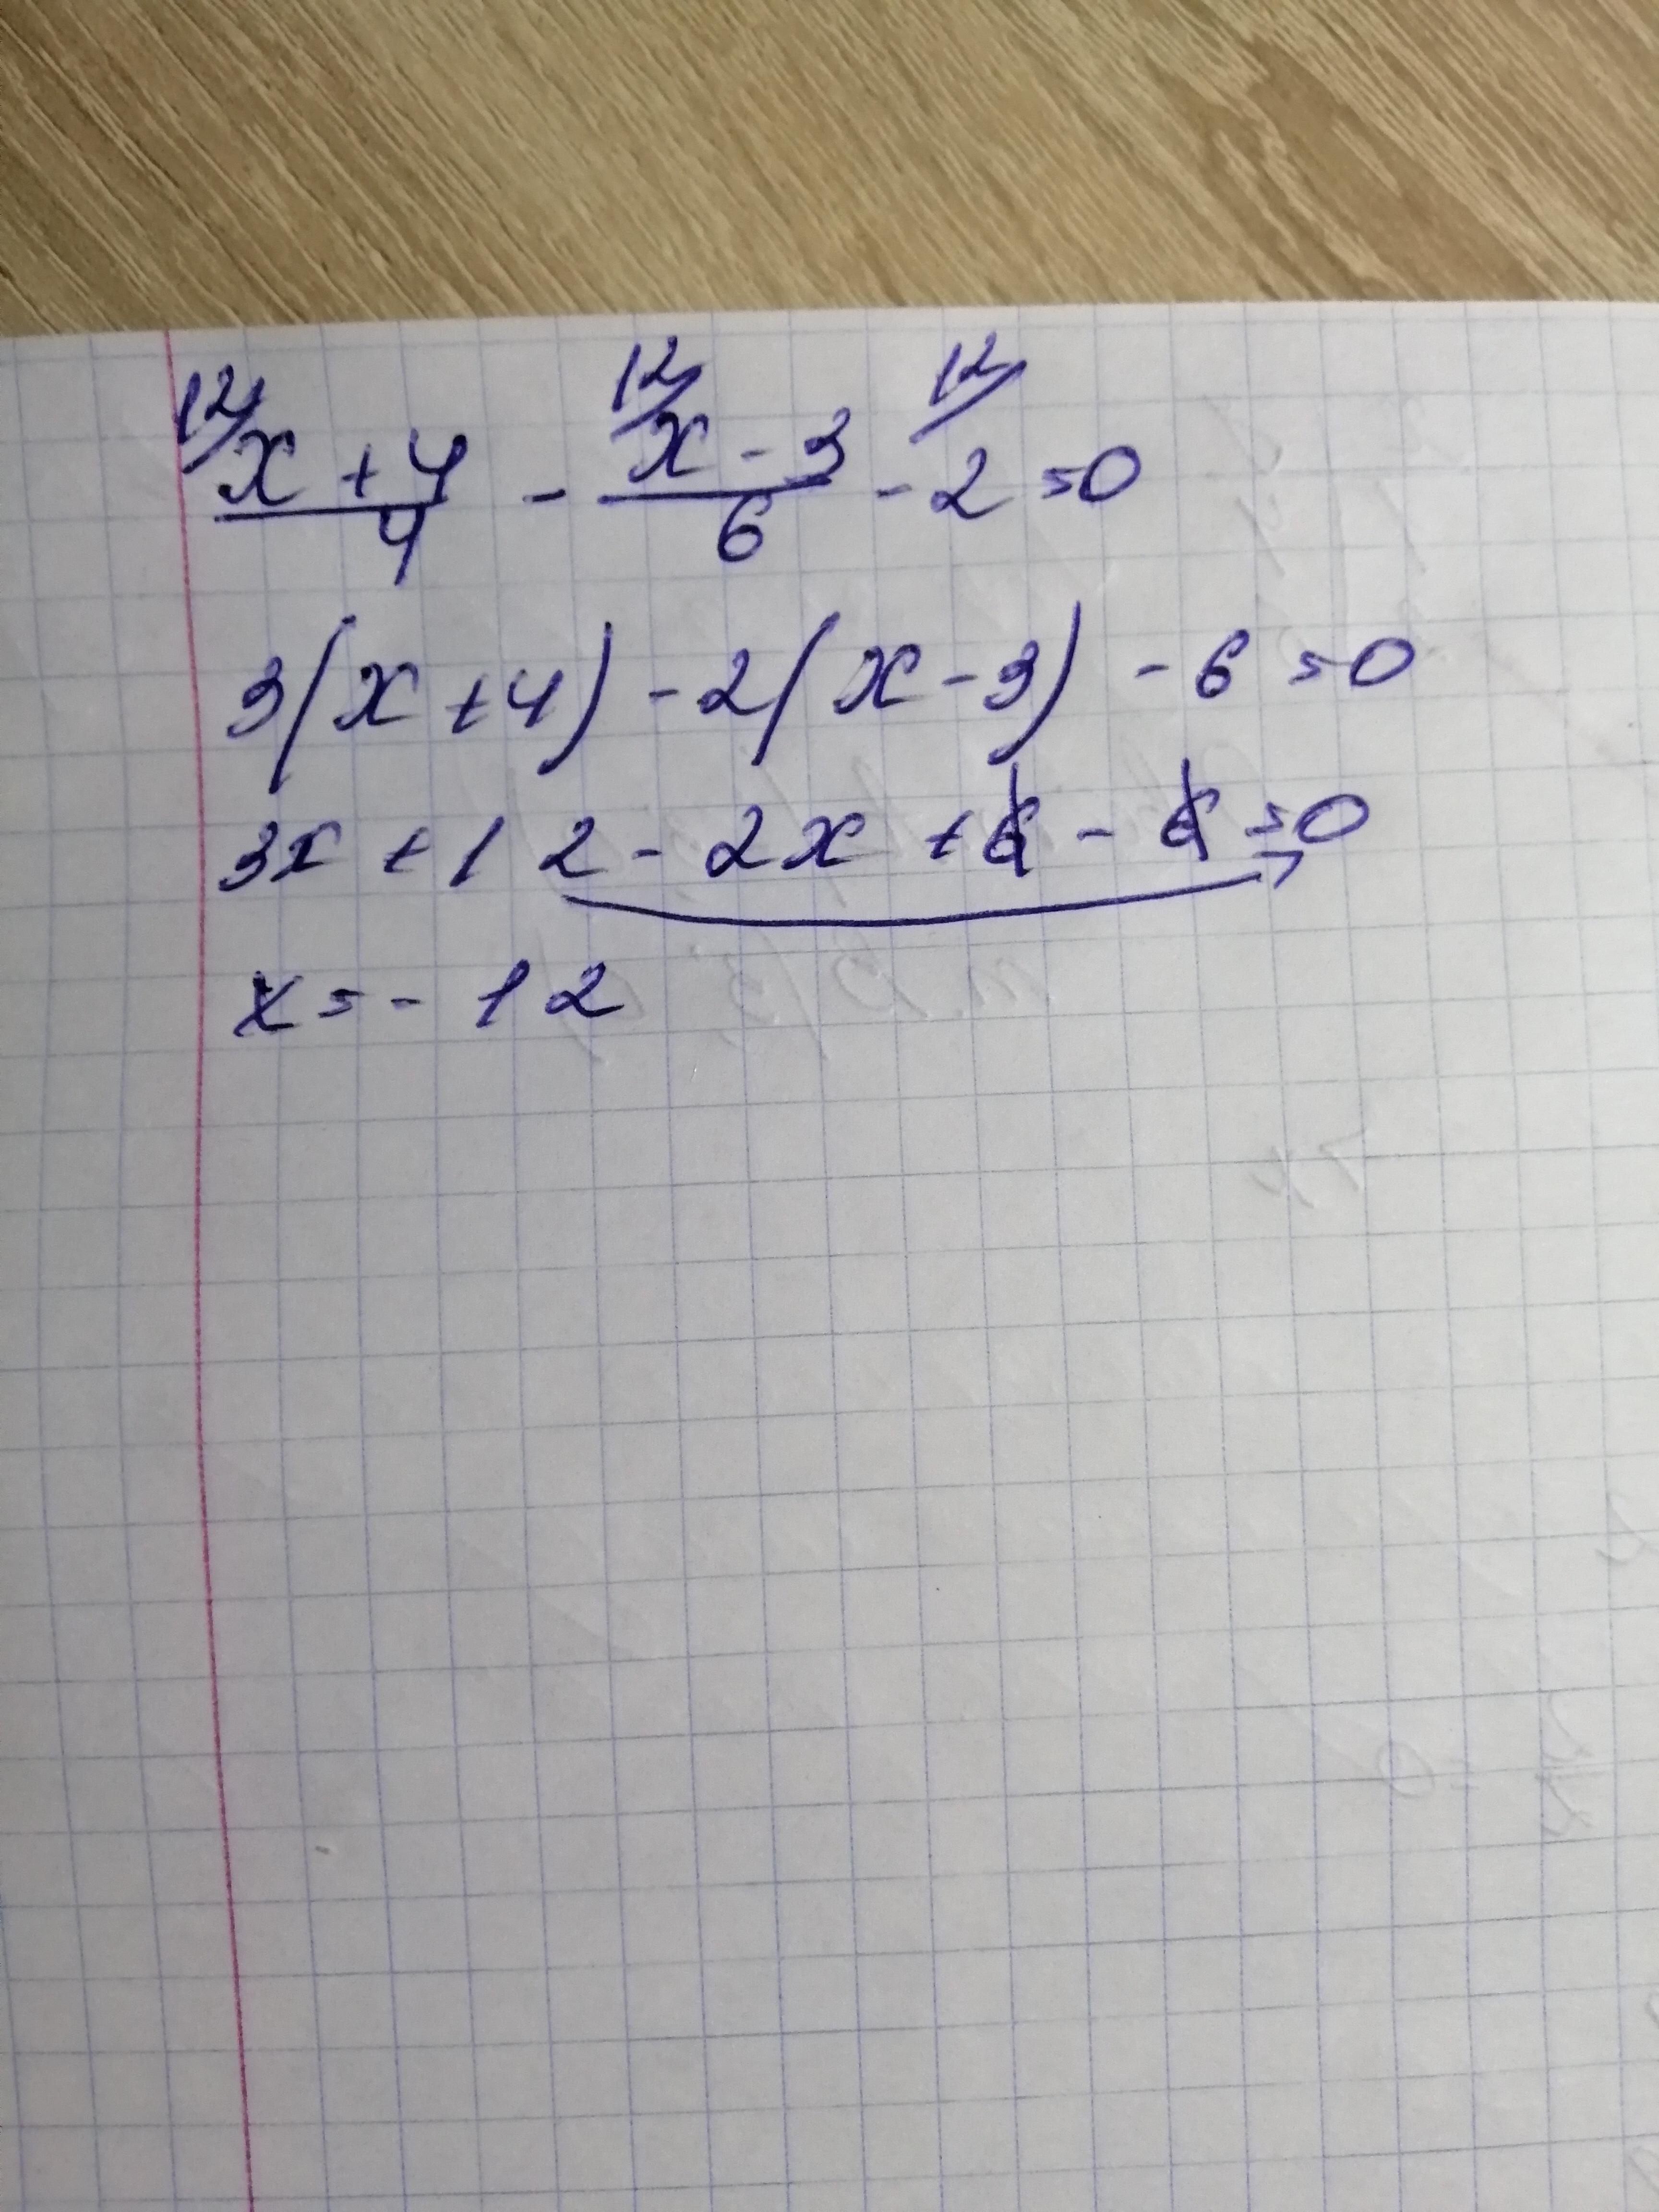 12/ 12/ 12/
x + 4 / 4 - x - 3 / 6 - 2 = 0
3(x + 4) - 2(x - 3) - 6 = 0
3x + 12 - 2x + 6 - 6 = 0
x = - 12